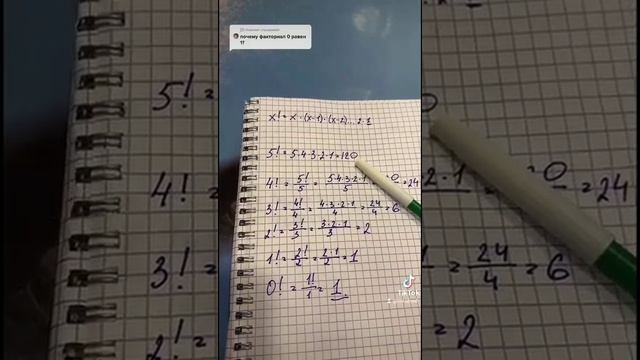 почему факториал 0 равен
1?
x! = x · (x-1) · (x-2)... 2 · 1
5! = 5·4·3·2·1 = 120
4! = 5!/5 = 5·4·3·2·1/5 = 0 = 24
3! = 4!/4 = 4·3·2·1/4 = 24/4 = 6
2! = 3!/3 = 3·2·1/3 = 2
1! = 2!/2 = 2·1/2 = 1
0! = 1!/1 = 1
TikTok